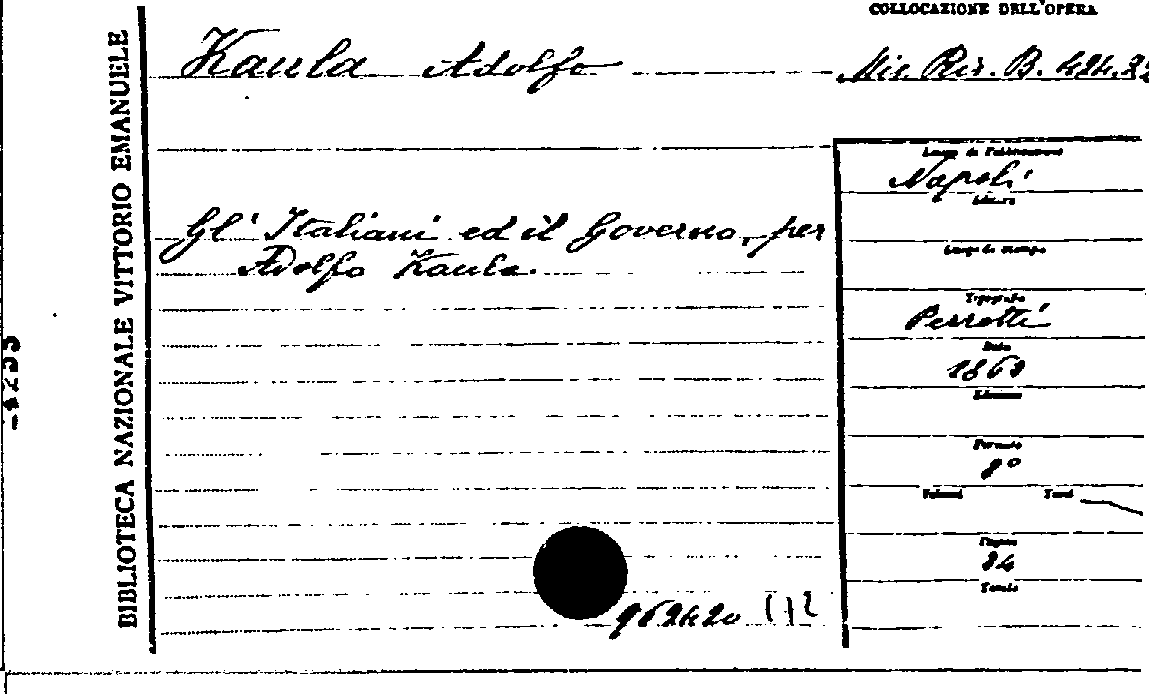 COLLOCAZIONE DELL'OPERA
Kaula Adolfo
Mis. Ris. B. 424.
BIBLIOTECA NAZIONALE VITTORIO EMANUELE
Luogo di Pubblicazione
Napoli
Editore
Gl' Italiani ed il Governo, per
Adolfo Kaula.
Luogo di stampa
Tipografo
Perrotti
Data
1860
Edizione
Formato
8°
Volumi Tomi
Pagine
84
Tavole
962420